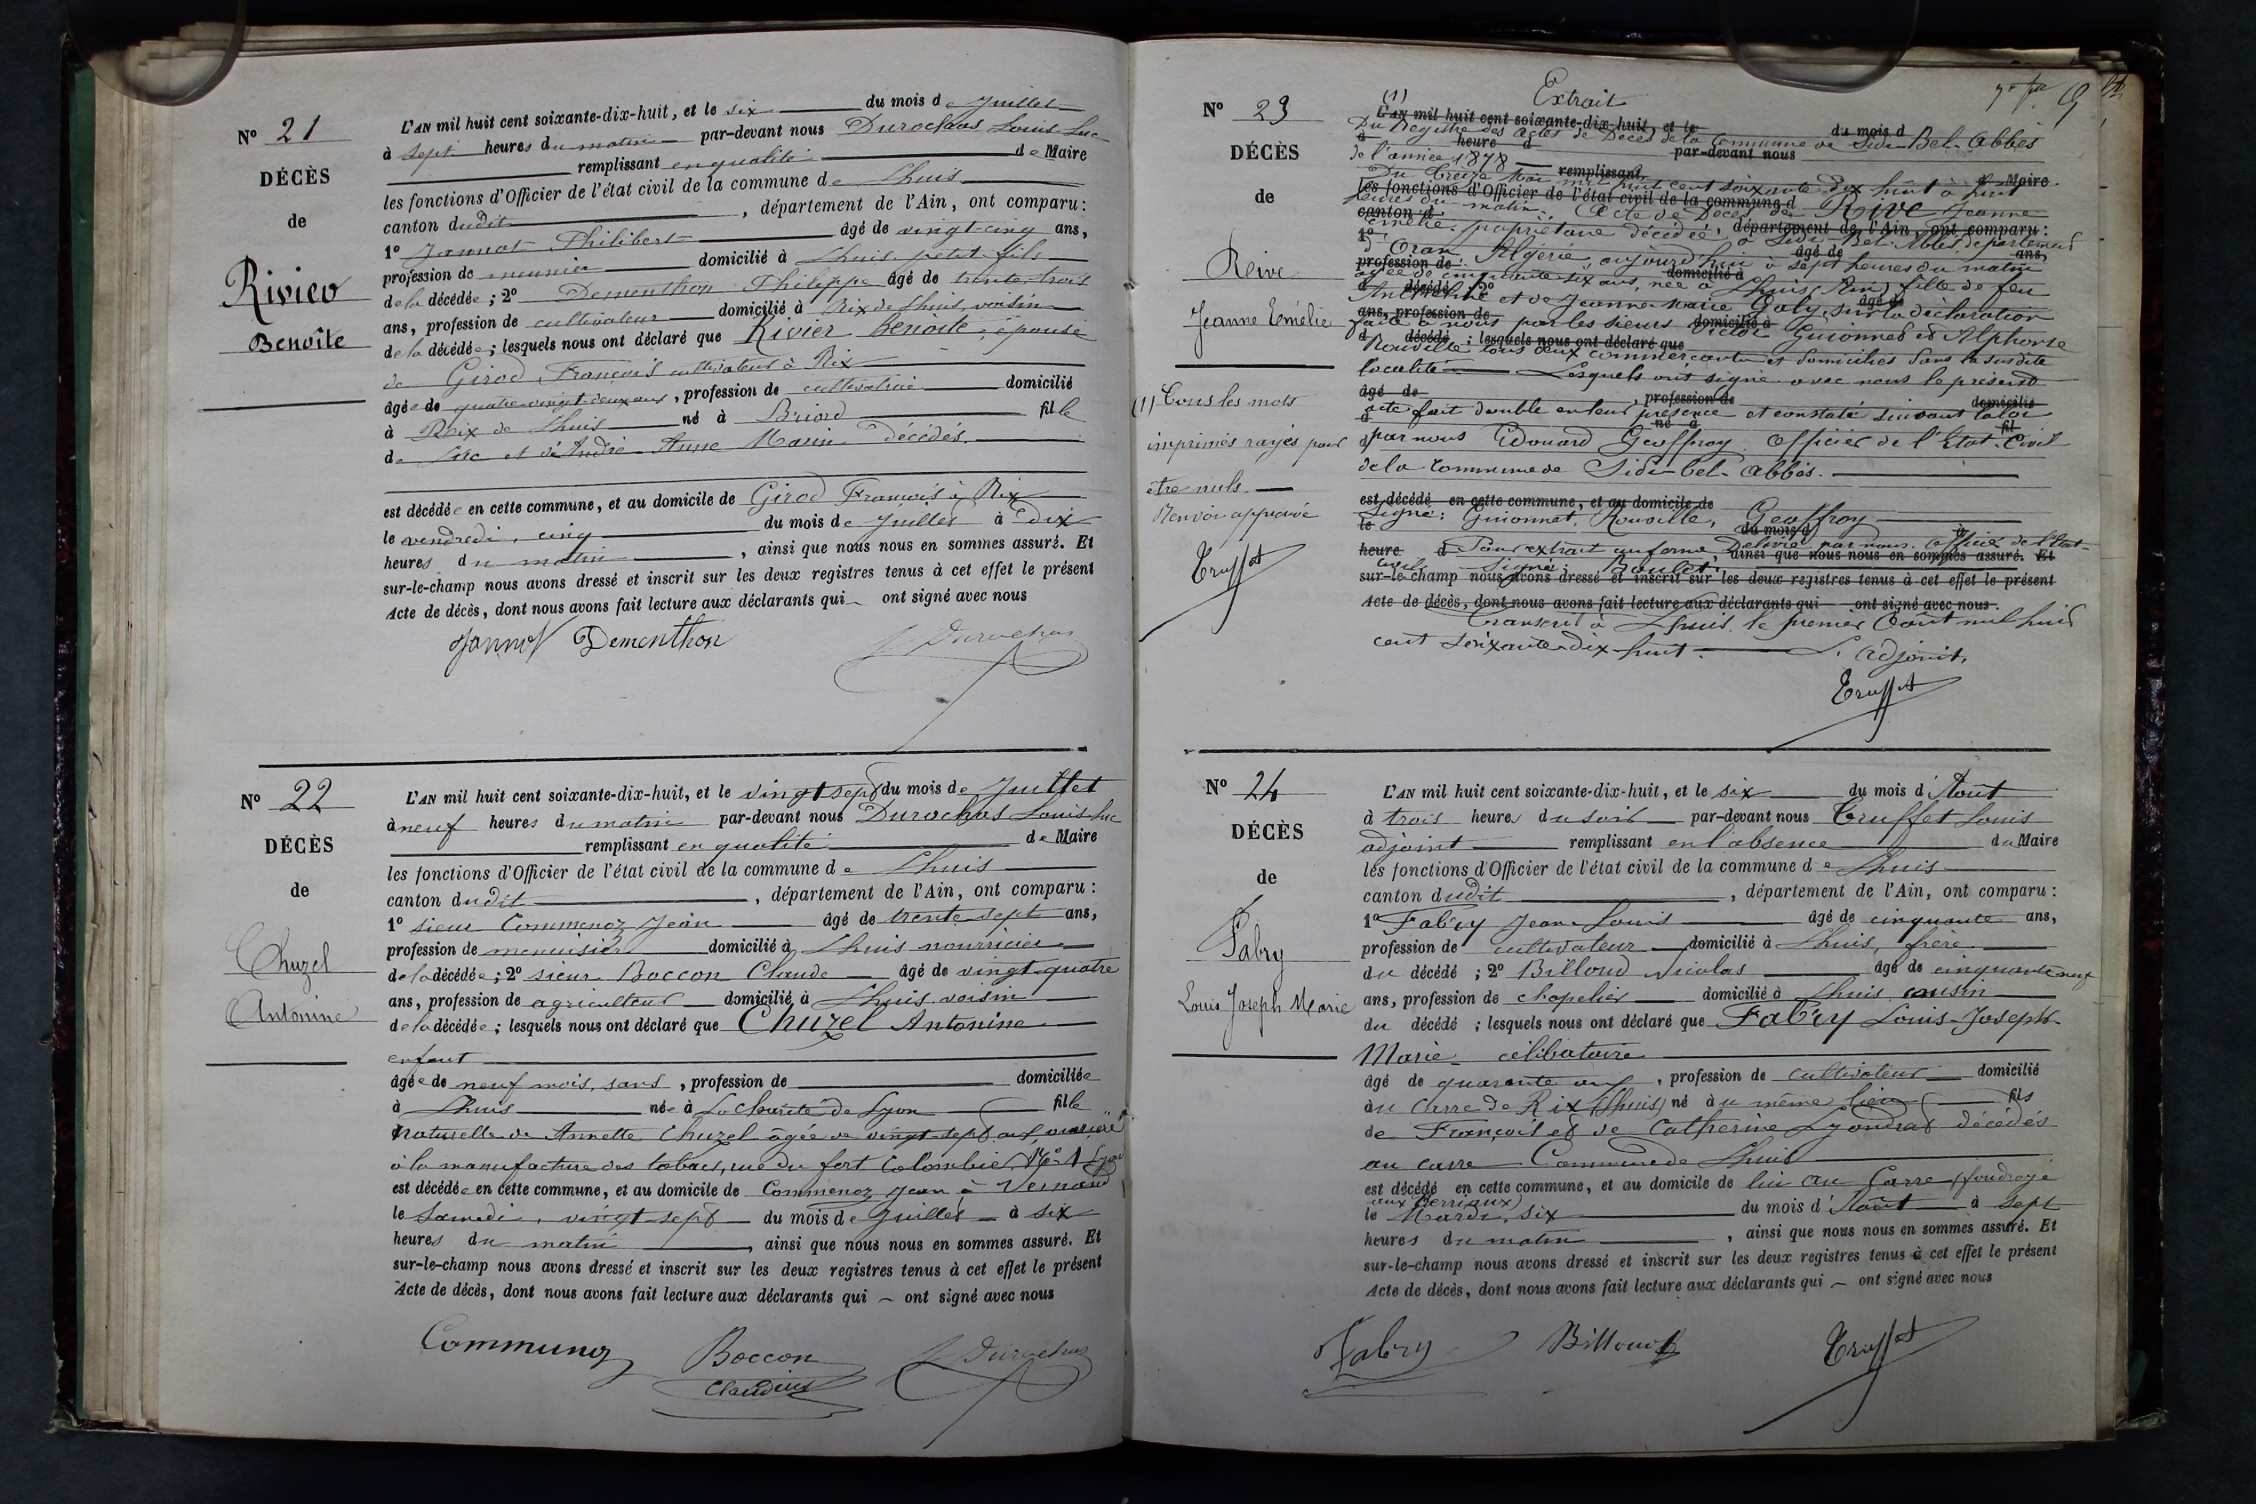 N° 21
DÉCÈS
de
Rivier
Benoîte
L'AN mil huit cent soixante-dix-huit, et le six du mois de Juillet
à sept heures du matin par-devant nous Durochas Louis Luc
remplissant en qualité de Maire
les fonctions d'Officier de l'état civil de la commune de Lhuis
canton dudit , département de l'Ain, ont comparu :
1° Jannot Philibert âgé de vingt-cinq ans,
profession de meunier domicilié à Lhuis petit-fils
de la décédée ; 2° Dementhon Philippe âgé de trente-trois
ans, profession de cultivateur domicilié à Rix de Lhuis, voisin
de la décédée ; lesquels nous ont déclaré que Rivier Benoite, épouse
de Girod François cultivateur à Rix
âgée de quatre-vingt-deux ans, profession de cultivatrice domicilié
à Rix de Lhuis né à Briord fille
de Luc et d'Andié Anne Marie décédés.
est décédée en cette commune, et au domicile de Girod François à Rix
le vendredi, cinq du mois de Juillet à dix
heures du matin , ainsi que nous nous en sommes assuré. Et
sur-le-champ nous avons dressé et inscrit sur les deux registres tenus à cet effet le présent
Acte de décès, dont nous avons fait lecture aux déclarants qui ont signé avec nous
Jannot Dementhon L. Durochas
N° 22
DÉCÈS
de
Chuzel
Antonine
L'AN mil huit cent soixante-dix-huit, et le vingt sept du mois de Juillet
à neuf heures du matin par-devant nous Durochas Louis Luc
remplissant en qualité de Maire
les fonctions d'Officier de l'état civil de la commune de Lhuis
canton dudit , département de l'Ain, ont comparu :
1° sieur Commenoz Jean âgé de trente sept ans,
profession de menuisier domicilié à Lhuis nourricier
de la décédée ; 2° sieur Boccon Claude âgé de vingt-quatre
ans, profession de agriculteur domicilié à Lhuis voisin
de la décédée ; lesquels nous ont déclaré que Chuzel Antonine
enfant
âgée de neuf mois, sans , profession de domiciliée
à Lhuis née à La Charité de Lyon fille
naturelle de Annette Chuzel âgée de vingt-sept ans, ouvrière
à la manufacture des tabacs, rue du fort Colombier N° 1 Lyon
est décédée en cette commune, et au domicile de Commenoz Jean à
le Samedi, vingt sept du mois de Juillet à six
heures du matin , ainsi que nous nous en sommes assuré. Et
sur-le-champ nous avons dressé et inscrit sur les deux registres tenus à cet effet le présent
Acte de décès, dont nous avons fait lecture aux déclarants qui ont signé avec nous
Boccon L Durochas
Claudius
N° 23
DÉCÈS
de
Reive
Jeanne Emélie
(1) Tous les mots
imprimés rayés pour
être nuls.
Renvoi approuvé
Truffet
(1) Extrait
L'AN mil huit cent soixante-dix-huit, et le du mois d
Du Registre des actes de Décès de la Commune de Sidi-Bel-Abbès
à heure d par-devant nous
de l'année 1878
remplissant d Maire
Du treize Mai mil huit cent soixante-dix huit à huit
les fonctions d'Officier de l'état civil de la commune d
heures du matin. Acte de Décès de Rive Jeanne
canton d , département de l'Ain, ont comparu :
Emélie, propriétaire décédée à Sidi-Bel-Abbès département
1° âgé de ans,
d'Oran Algérie aujourd'hui à sept heures du matin
profession de domicilié à
âgée de cinquante-six ans, née à Lhuis (Ain) fille de feu
d décédé ; 2° âgé de
Anthelme et de Jeanne Marie Goly, sur la déclaration
ans, profession de domicilié à
faite à nous par les sieurs Victor Guionnet et Alphonse
d décédé ; lesquels nous ont déclaré que
Rouville tous deux commerçants et domiciliés dans la susdite
localité Lesquels ont signé avec nous le présent
âgé de , profession de domicilié
acte fait double en leur présence et constaté suivant la loi
à né à fil
par nous Edouard Geoffroy officier de l'Etat-Civil
de la commune de Sidi-bel-Abbès.
est décédé en cette commune, et au domicile de
Signé : Guionnet, Rouville, Geoffroy
le du mois d à
Pour extrait conforme Délivré par nous officier de l'Etat-
heure d , ainsi que nous nous en sommes assuré. Et
civil Signé : Boulet
sur-le-champ nous avons dressé et inscrit sur les deux registres tenus à cet effet le présent
Acte de décès, dont nous avons fait lecture aux déclarants qui ont signé avec nous.
Transcrit à Lhuis le premier Août mil huit
cent soixante-dix-huit. L'adjoint,
Truffet
N° 24
DÉCÈS
de
Fabry
Louis Joseph Marie
L'AN mil huit cent soixante-dix-huit, et le six du mois d'Août
à trois heures du soir par-devant nous Truffet Louis
adjoint remplissant en l'absence du Maire
les fonctions d'Officier de l'état civil de la commune de Lhuis
canton dudit , département de l'Ain, ont comparu :
1° Fabry Jean Louis âgé de cinquante ans,
profession de cultivateur domicilié à Lhuis, frère
du décédé ; 2° Billoud Nicolas âgé de cinquante neuf
ans, profession de chapelier domicilié à Lhuis cousin
du décédé ; lesquels nous ont déclaré que Fabry Louis-Joseph-
Marie célibataire
âgé de quarante ans , profession de cultivateur domicilié
au Carre de Rix (Lhuis) né au même lieu fils
de François et de Catherine Lyondrat décédés
au carre Commune de Lhuis
est décédé en cette commune, et au domicile de lui au Carre (foudroyé
aux Perriaux)
le Mardi, six du mois d'Août à sept
heures du matin , ainsi que nous nous en sommes assuré. Et
sur-le-champ nous avons dressé et inscrit sur les deux registres tenus à cet effet le présent
Acte de décès, dont nous avons fait lecture aux déclarants qui ont signé avec nous
Fabry Billoud Truffet